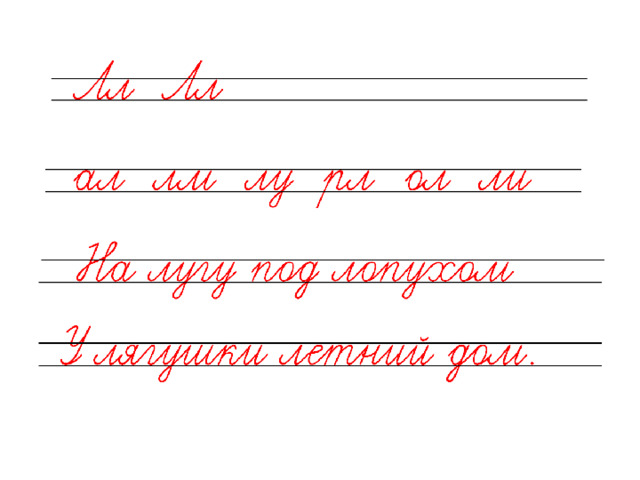 Лл Лл
ал лм лу рл ол ли
На лугу под лопухом
У лягушки летний дом.